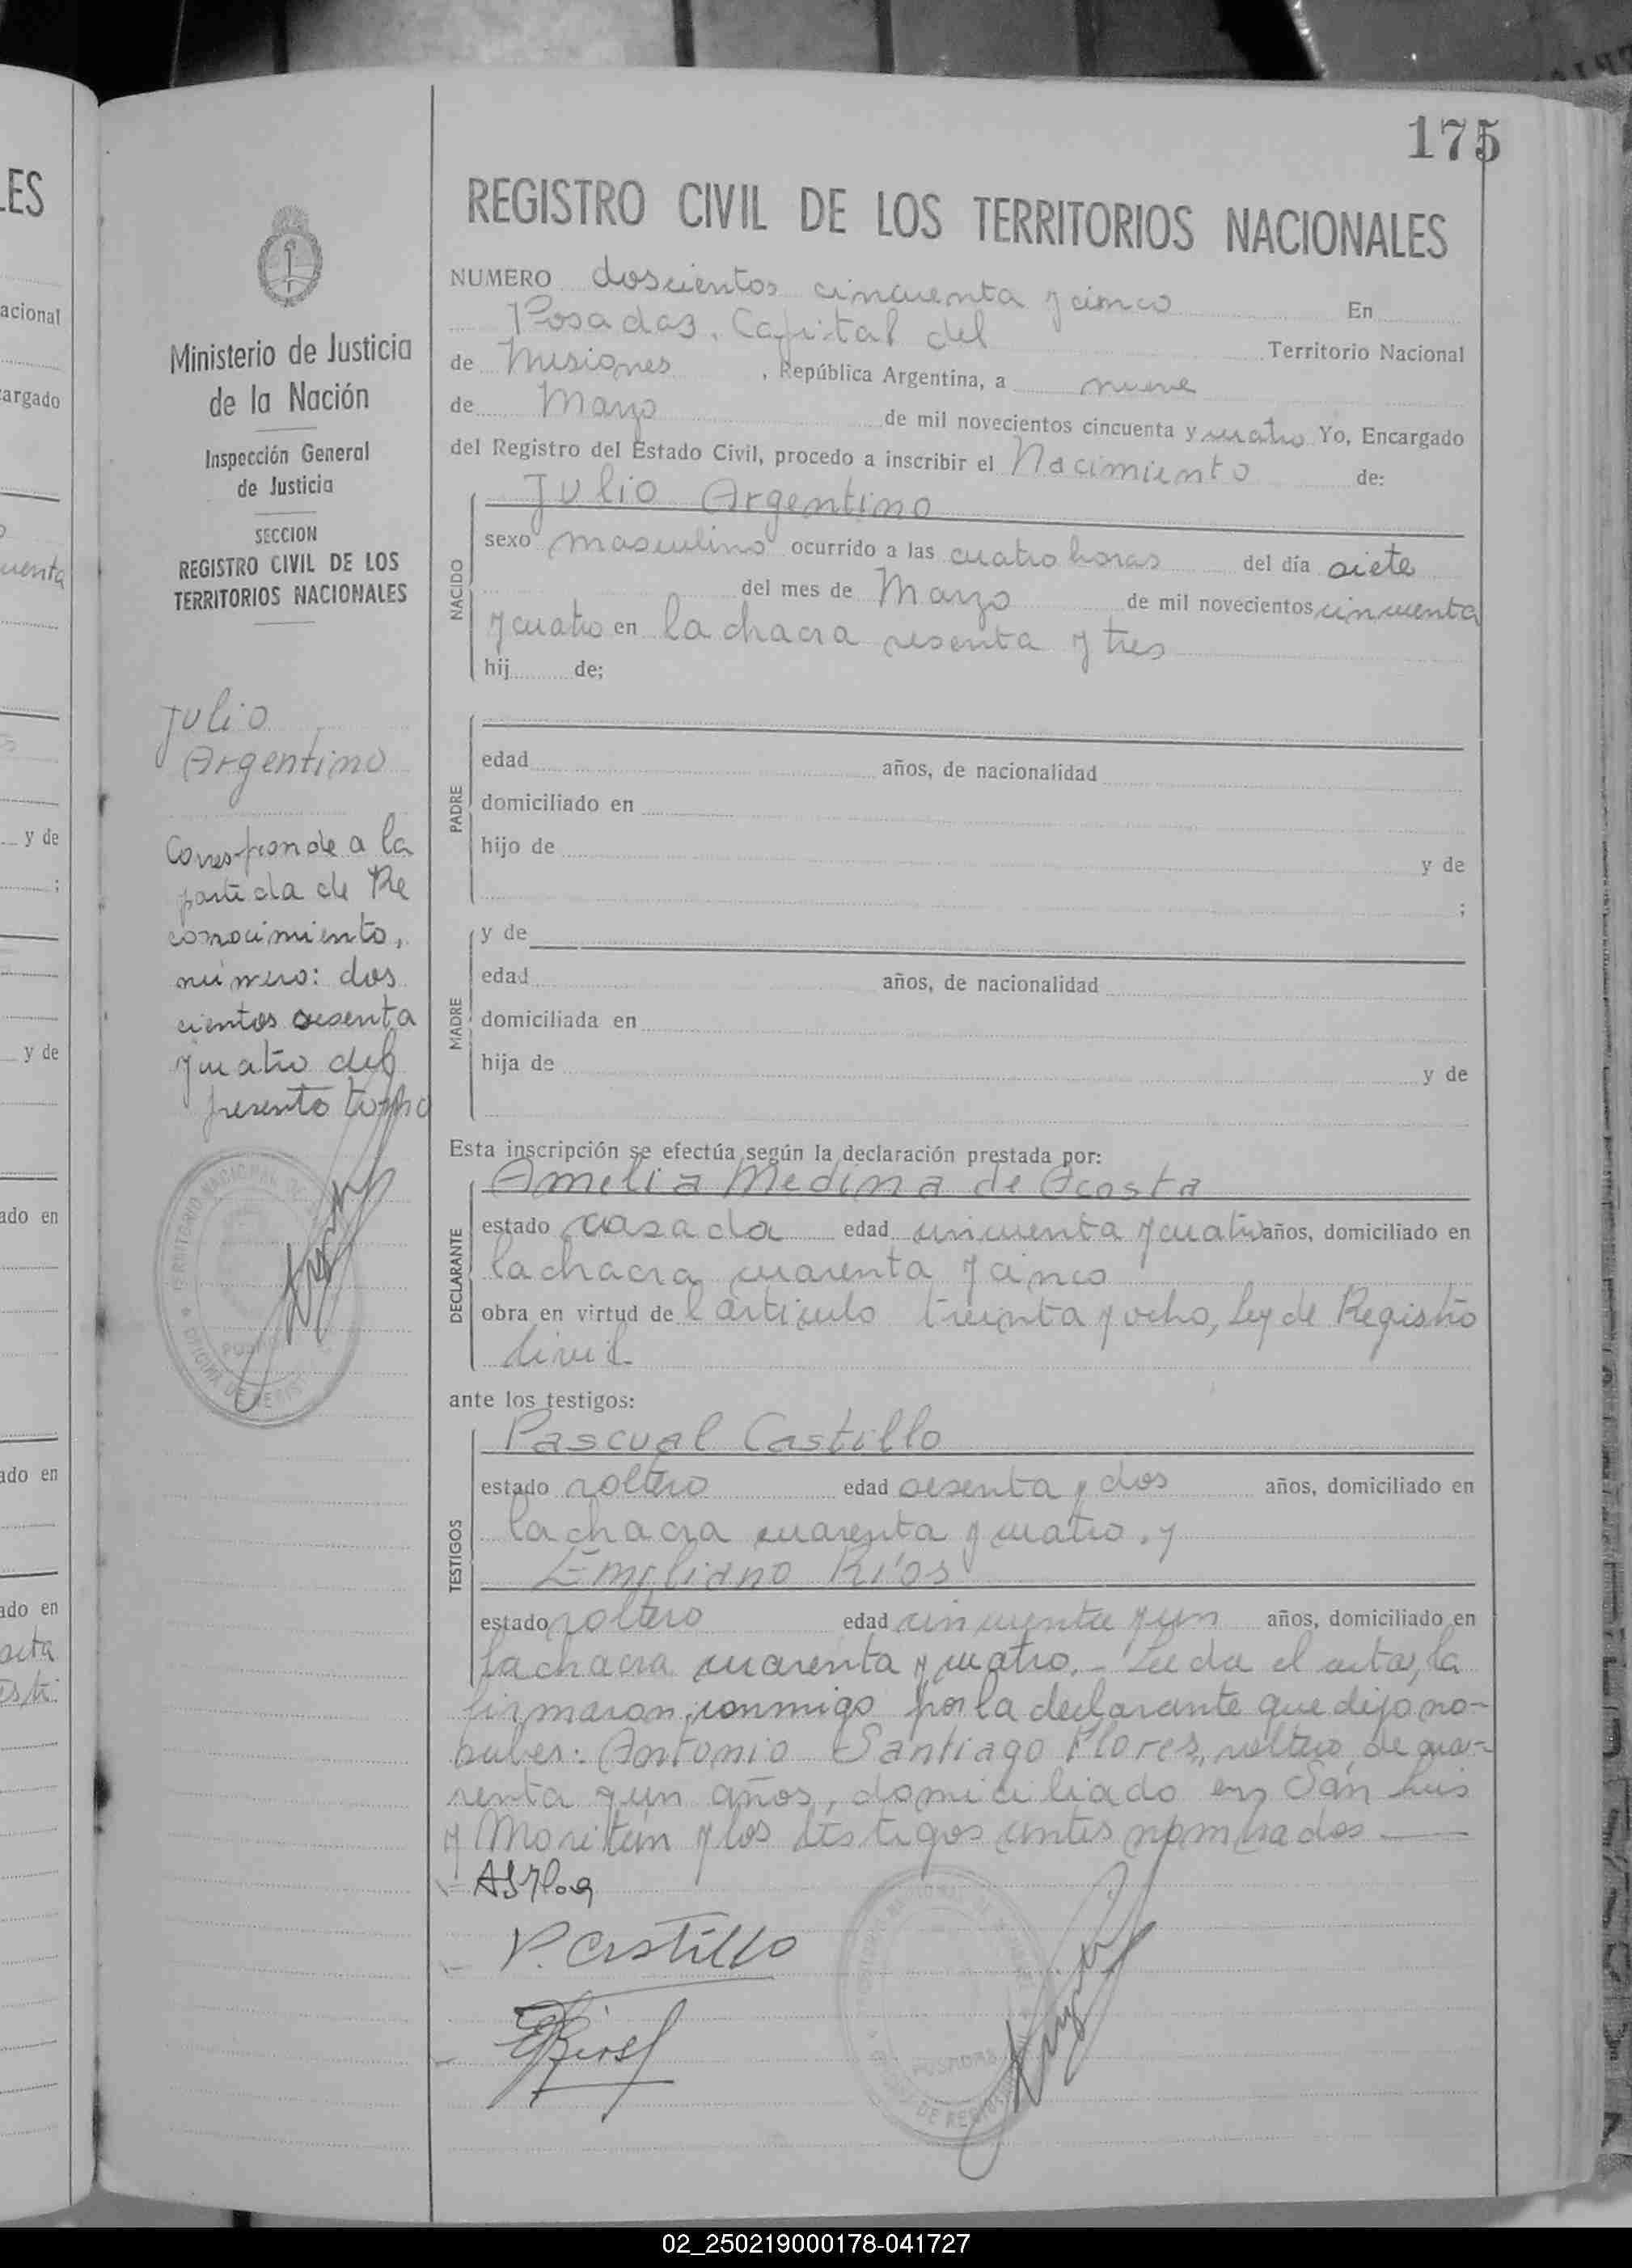 175
REGISTRO CIVIL DE LOS TERRITORIOS NACIONALES
NUMERO doscientos cincuenta y cinco En
Posadas, Capital del Territorio Nacional
de Misiones, República Argentina, a nueve
de Marzo de mil novecientos cincuenta y cuatro Yo, Encargado
del Registro del Estado Civil, procedo a inscribir el Nacimiento de:
Julio Argentino
NACIDO
sexo masculino ocurrido a las cuatro horas del día siete
del mes de Marzo de mil novecientos cincuenta
y cuatro en la chacra sesenta y tres
hij de;
PADRE
edad años, de nacionalidad
domiciliado en
hijo de y de
;
MADRE
y de
edad años, de nacionalidad
domiciliada en
hija de y de
Esta inscripción se efectúa según la declaración prestada por:
Amelia Medina de Acosta
DECLARANTE
estado casada edad cincuenta y cuatro años, domiciliado en
la chacra cuarenta y cinco
obra en virtud del artículo treinta y ocho, Ley de Registro
Civil
ante los testigos:
Pascual Castillo
TESTIGOS
estado soltero edad sesenta y dos años, domiciliado en
la chacra cuarenta y cuatro, y
Emiliano Ríos
estado soltero edad cincuenta y un años, domiciliado en
la chacra cuarenta y cuatro. - Leida el acta, la
firmaron conmigo por la declarante que dijo no-
saber: Antonio Santiago Flores, soltero, de cua-
renta y un años, domiciliado en San Luis
y los testigos antes nombrados
P. Castillo
Ministerio de Justicia
de la Nación
Inspección General
de Justicia
SECCION
REGISTRO CIVIL DE LOS
TERRITORIOS NACIONALES
Julio
Argentino
Corresponde a la
partida de Re
conocimiento,
número: dos
cientos sesenta
y cuatro del
presente tomo
POSADAS
LES
acional
cargado
uenta
y de
;
y de
ado en
ado en
ado en
acta
02_250219000178-041727